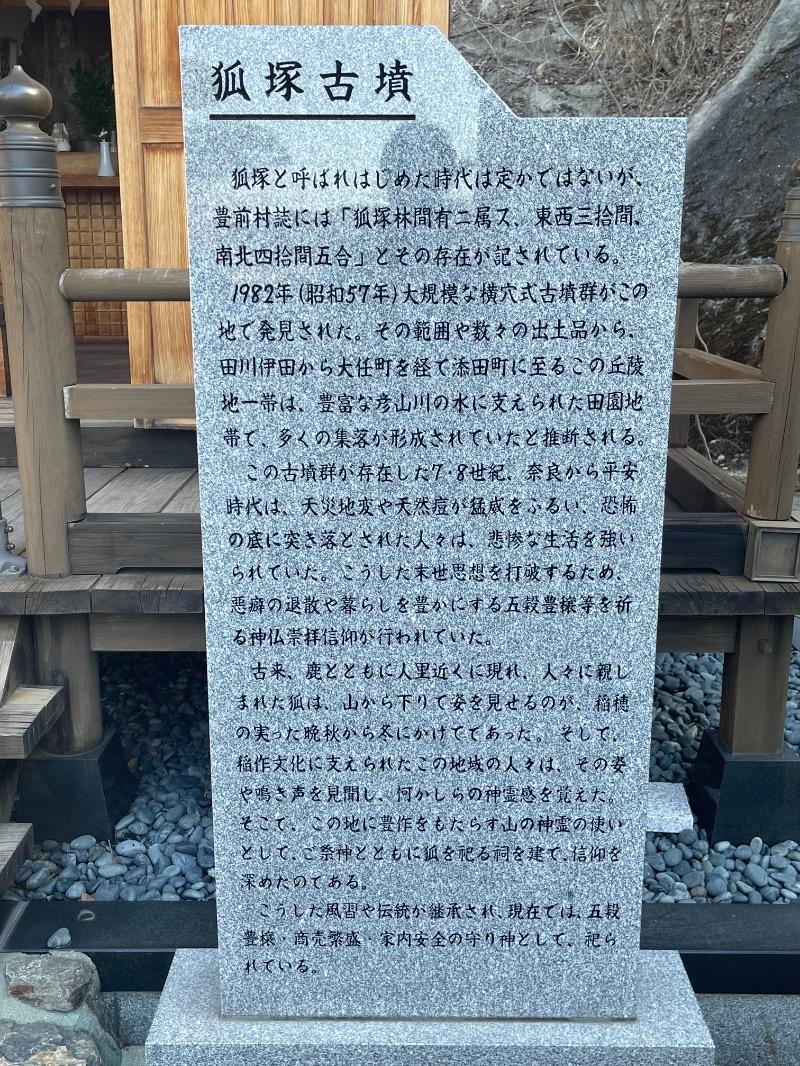 狐塚古墳
狐塚と呼ばれはじめた時代は定かではないが、
豊前村誌には「狐塚林間有ニ属ス、東西三拾間、
南北四拾間五合」とその存在が記されている。
1982年(昭和57年)大規模な横穴式古墳群がこの
地で発見された。その範囲や数々の出土品から、
田川伊田から大任町を経て添田町に至るこの丘陵
地一帯は、豊富な彦山川の水に支えられた田園地
帯で、多くの集落が形成されていたと推断される。
この古墳群が存在した7・8世紀、奈良から平安
時代は、天災地変や天然痘が猛威をふるい、恐怖
の底に突き落とされた人々は、悲惨な生活を強い
られていた。こうした末世思想を打破するため、
悪癖の退散や暮らしを豊かにする五穀豊穣等を祈
る神仏崇拝信仰が行われていた。
古来、鹿とともに人里近くに現れ、人々に親し
まれた狐は、山から下りて姿を見せるのが、稲穂
の実った晩秋から冬にかけてであった。そして、
稲作文化に支えられたこの地域の人々は、その姿
や鳴き声を見聞し、何かしらの神霊感を覚えた。
そこで、この地に豊作をもたらす山の神霊の使い
として、ご祭神とともに狐を祀る祠を建て、信仰を
深めたのである。
こうした風習や伝統が継承され、現在では、五穀
豊穣・商売繁盛・家内安全の守り神として、祀ら
れている。